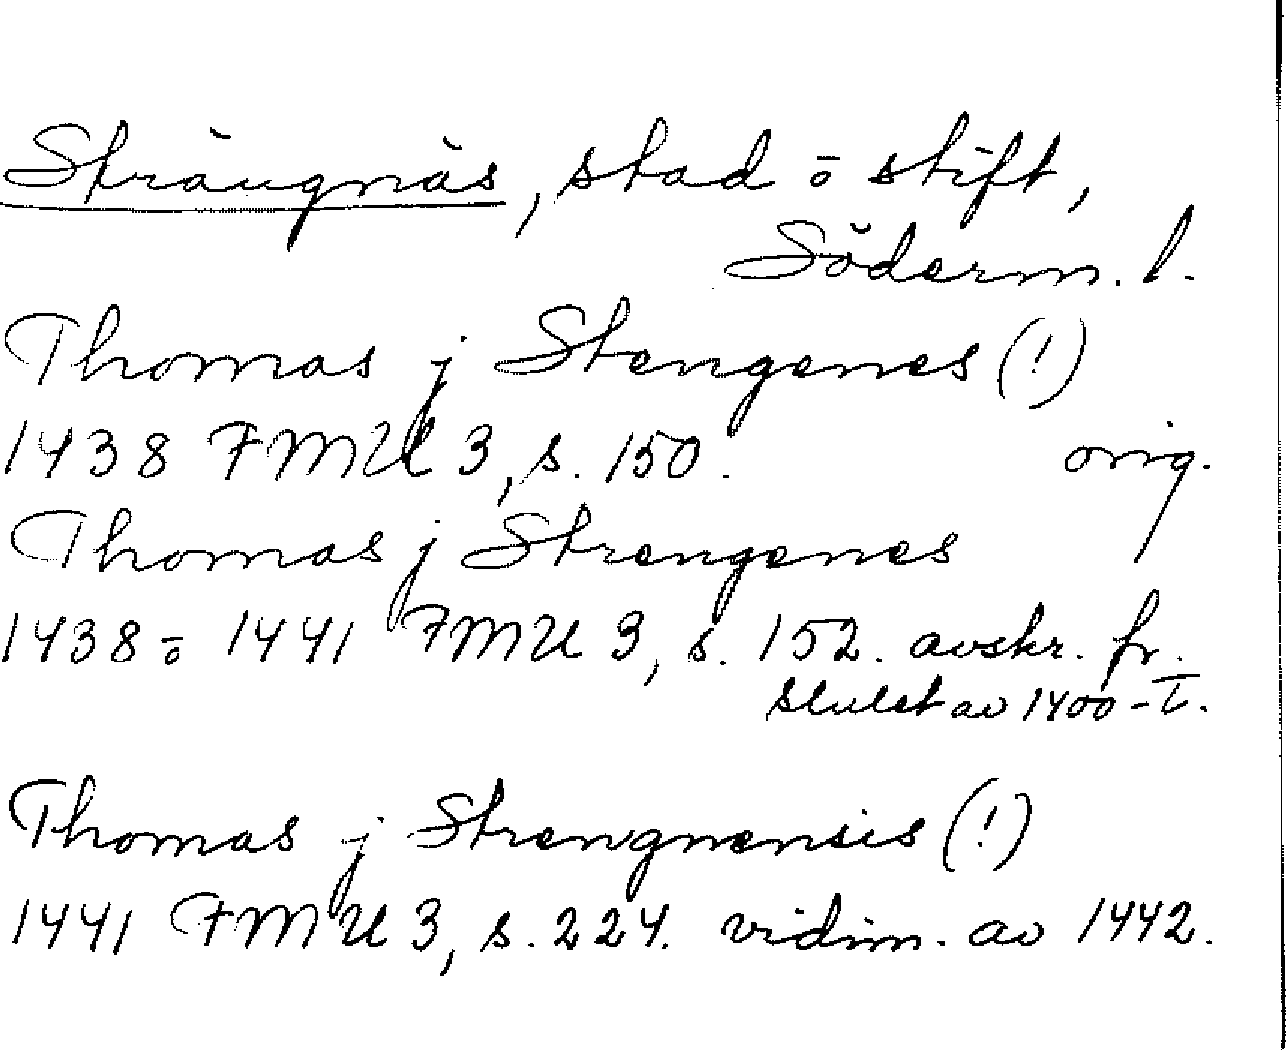 Strängnäs, stad o stift,
Söderm. l.
Thomas j Stengenes (!)
1438 FMU 3, s. 150. orig.
Thomas j Strengenes
1438 o 1441 FMU 3, s. 152. avskr. fr.
slutet av 1400-t.
Thomas j Strengnensis (!)
1441 FMU 3, s. 224. vidim. av 1442.